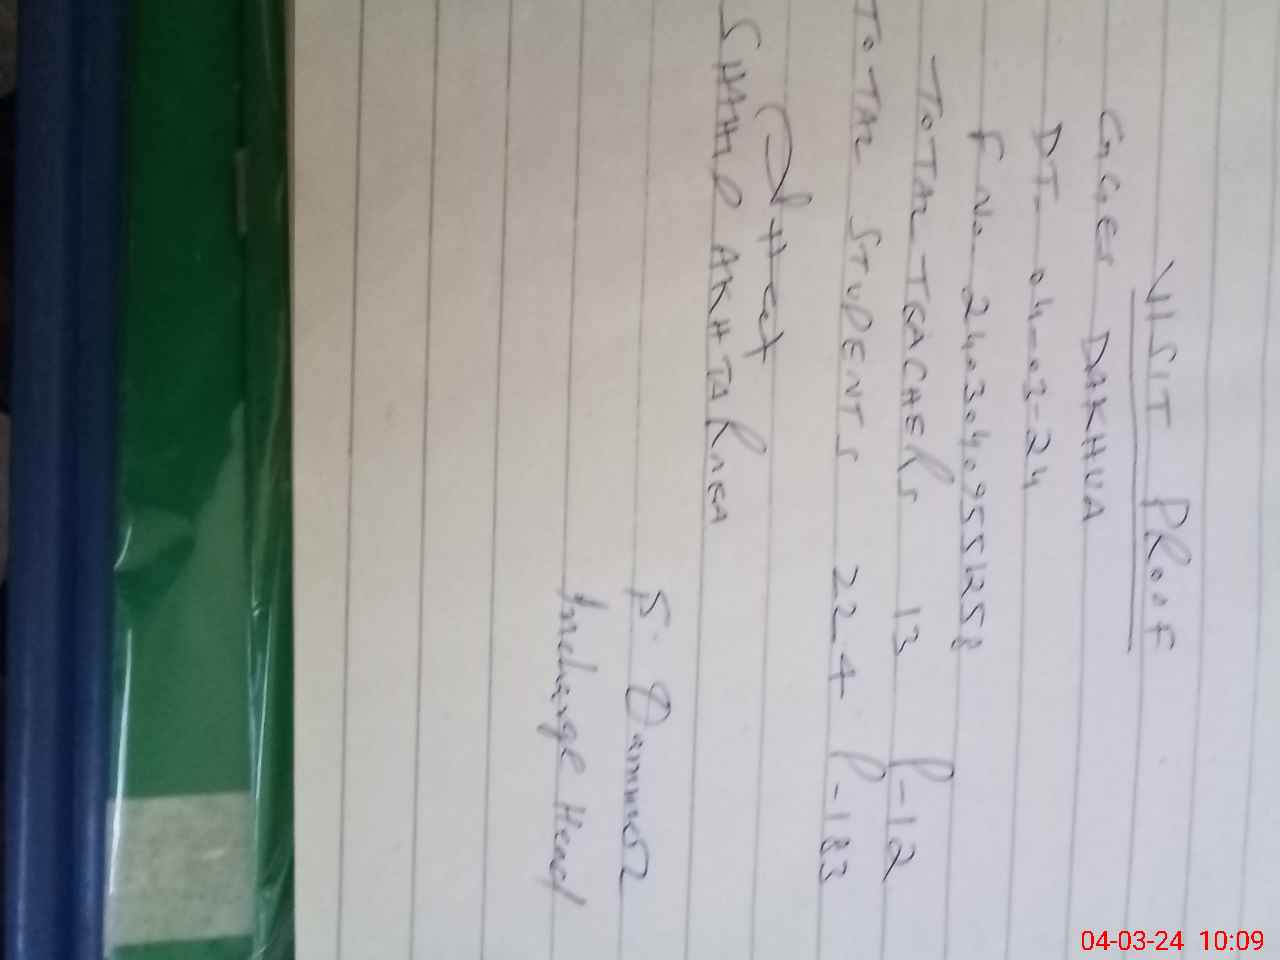 VISIT PROOF
GGES DAKHUA
DT- 04-03-24
F No 24030409551258
TOTAL TEACHERS 13 P-12
TOTAL STUDENTS 224 P-183
SHAHID AKHTAR
Incharge Head
04-03-24 10:09